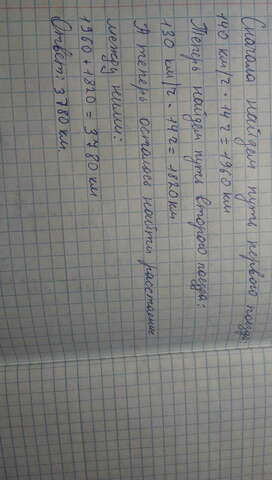 Сначала найдём путь первого поезда:
140 км/ч · 14 ч = 1960 км
Теперь найдём путь второго поезда:
130 км/ч · 14 ч = 1820 км
А теперь осталось найти расстояние
между ними:
1960 + 1820 = 3780 км
Ответ: 3780 км.